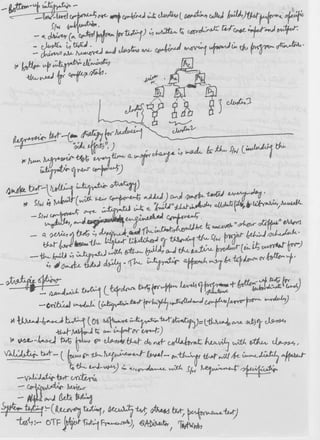 - Bottom-up integration -
- low-level components are combined into clusters (sometimes called builds) that perform a specific
S/w subfunction
- a driver (a control program for testing) is written to coordinate test case input and output.
- cluster is tested.
- drivers are removed and clusters are combined moving upward in the program structure.
* bottom up integration eliminates
the need for complex stubs.
cluster1
cluster2
cluster3
Regression test - (a strategy for reducing
"side effects".)
* run regression tests every time a major change is made to the S/w (including the
integration of new components)
Smoke test - (rolling integration strategy)
* S/w is rebuilt (with new components added) and smoke tested everyday.
- S/w components are integrated into a "build" that includes all data files, libraries, reusable
modules, and engineered components.
- a series of tests is designed and The intent should be to uncover "show stopper" errors
that have the highest likelihood of throwing the S/w project behind schedule.
- the build is integrated with other builds and the entire product (in its current form)
is smoke tested daily. The integration approach may be topdown or bottom-up.
- strategic options
- sandwich testing (topdown tests for upper levels of program structure + bottom-up tests for subordinate levels)
- critical module (integration test for highly critical and complex/error prone modules)
* thread-based testing (OO software integration test strategy) = (threads are sets of classes
that respond to an input or event)
* use-based tests focus on classes that do not collaborate heavily with other classes.
Validation test - (focus on the requirement level - on things that will be immediately apparent
to the end-user) in accordance with S/w requirement specification
- validation test criteria
- configuration review
- Alpha and Beta testing
System testing:- (Recovery testing, security test, stress test, performance test)
tools:- OTF (object Testing Framework), QADirector, TestWorks